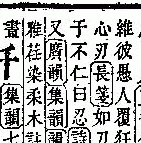 維彼愚人覆狂
心刃長箋如刃
于不仁曰忍詩
又廣韻集韻
雅荏染柔木註
畫
集韻